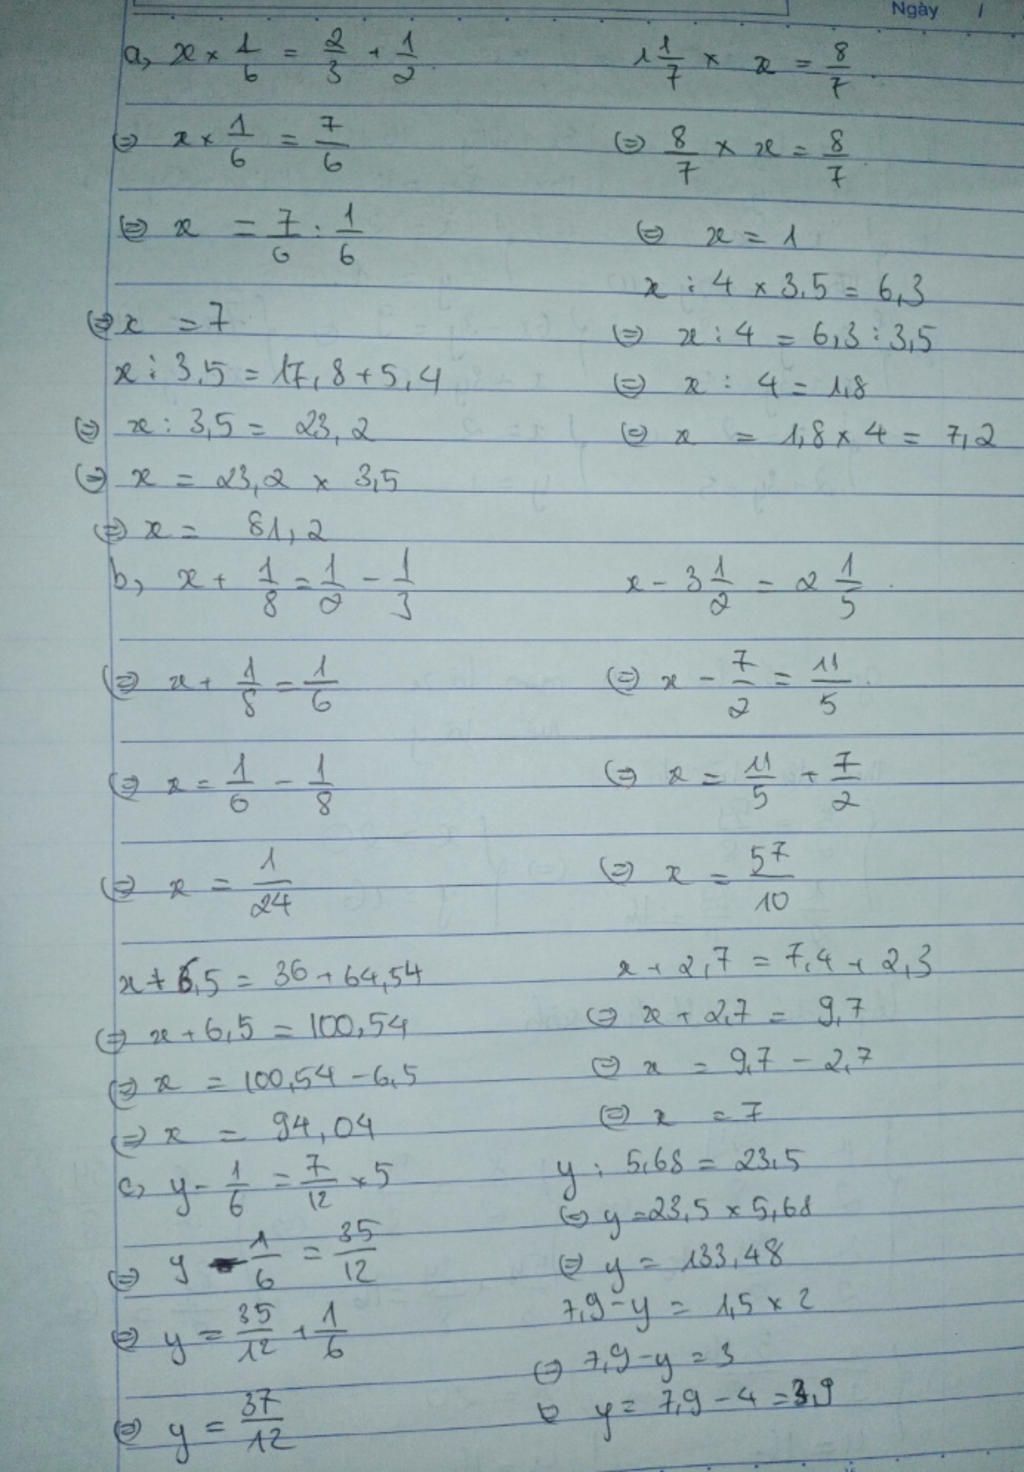 Ngày /
a, x × 1/6 = 2/3 + 1/2
(=) x × 1/6 = 7/6
(=) x = 7/6 : 1/6
(=) x = 7
x : 3,5 = 17,8 + 5,4
(=) x : 3,5 = 23,2
(=) x = 23,2 × 3,5
(=) x = 81,2
1 1/7 × x = 8/7
(=) 8/7 × x = 8/7
(=) x = 1
x : 4 × 3,5 = 6,3
(=) x : 4 = 6,3 : 3,5
(=) x : 4 = 1,8
(=) x = 1,8 × 4 = 7,2
b, x + 1/8 = 1/2 - 1/3
(=) x + 1/8 = 1/6
(=) x = 1/6 - 1/8
(=) x = 1/24
x + 6,5 = 36 + 64,54
(=) x + 6,5 = 100,54
(=) x = 100,54 - 6,5
(=) x = 94,04
x - 3 1/2 = 2 1/5
(=) x - 7/2 = 11/5
(=) x = 11/5 + 7/2
(=) x = 57/10
x + 2,7 = 7,4 + 2,3
(=) x + 2,7 = 9,7
(=) x = 9,7 - 2,7
(=) x = 7
c, y - 1/6 = 7/12 × 5
(=) y - 1/6 = 35/12
(=) y = 35/12 + 1/6
(=) y = 37/12
y : 5,68 = 23,5
(=) y = 23,5 × 5,68
(=) y = 133,48
7,9 - y = 1,5 × 2
(=) 7,9 - y = 3
(=) y = 7,9 - 4 = 3,9